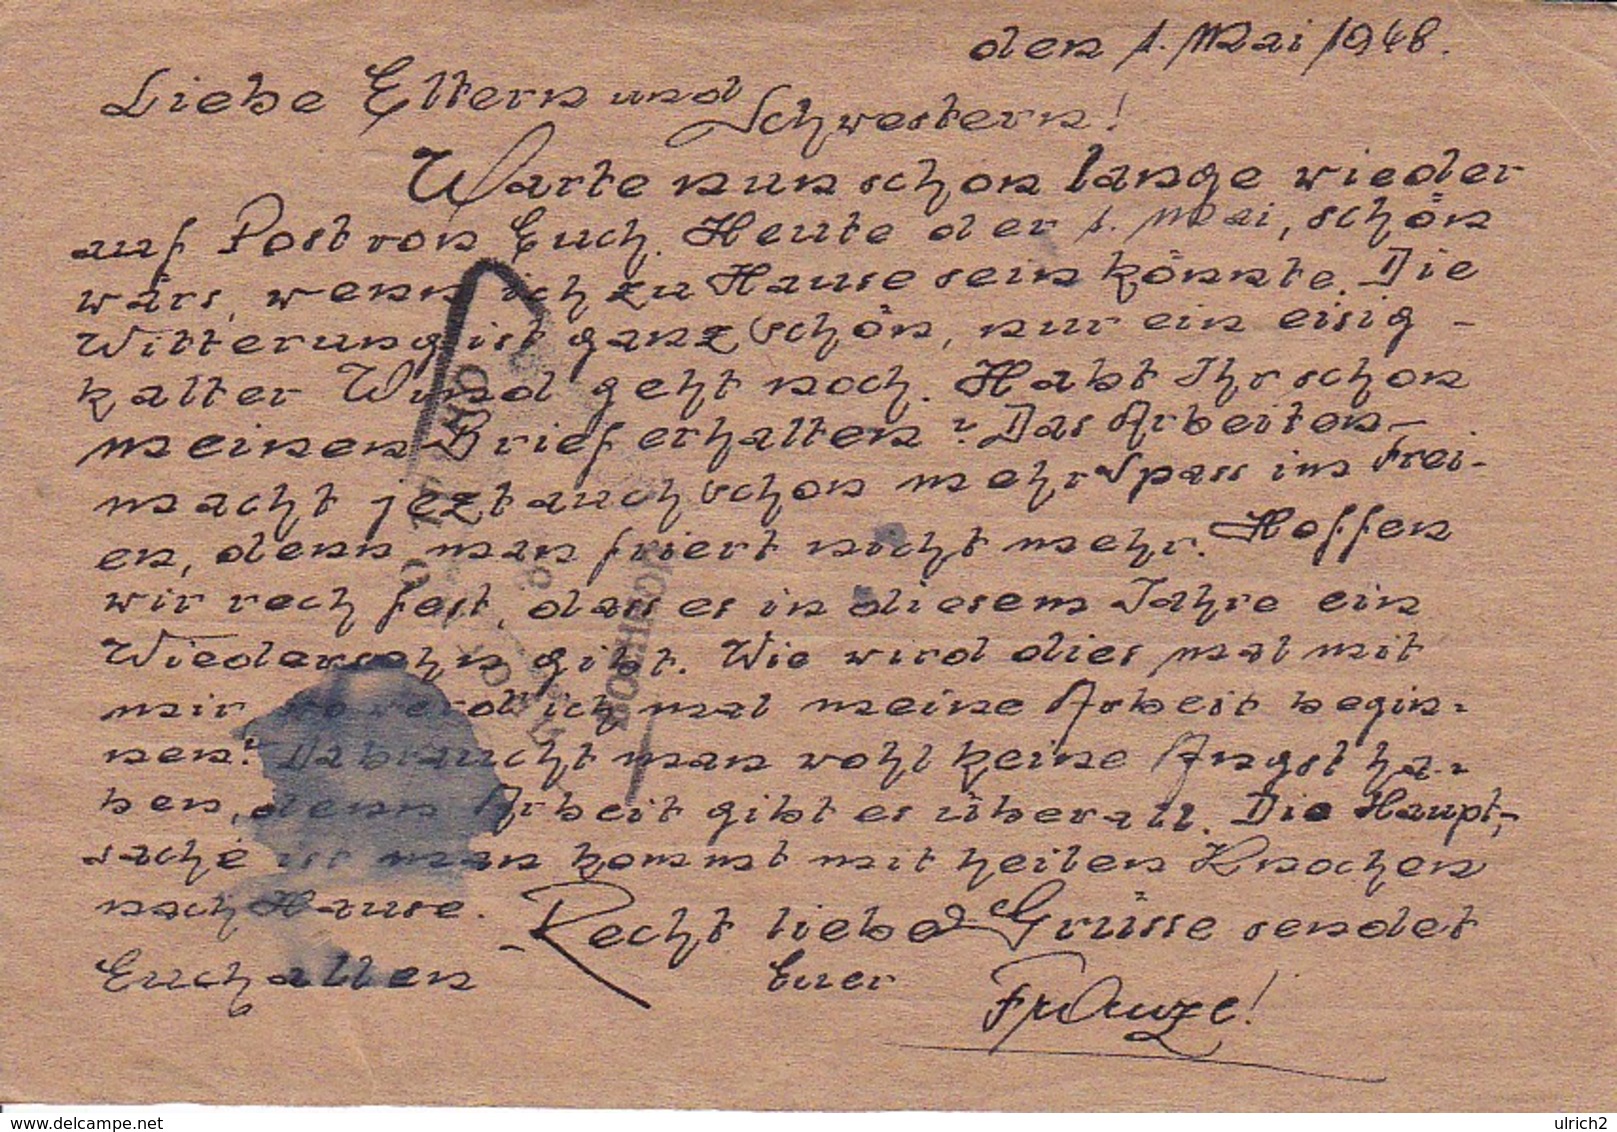 den 1. Mai 1948.
Liebe Eltern und Schwestern!
Warte nun schon lange wieder
auf Post von Euch. Heute der 1. Mai, schön
wärs, wenn ich zu Hause sein könnte. Die
Witterung ist ganz schön, nur ein eisig-
kalter Wind geht noch. Habt Ihr schon
meinen Brief erhalten? Das Arbeiten
macht jezt auch schon mehr Spass im Frei-
en, denn man friert nicht mehr. Hoffen
wir rech fest, dass es in diesem Jahre ein
Wiedersehn gibt. Wie wird dies mal mit
mir wo werd ich mal meine Arbeit begin-
nen? Da braucht man wohl keine Angst ha-
ben, denn Arbeit gibt es überall. Die Haupt-
sache ist man kommt mit heilen Knochen
nach Hause. Recht liebe Grüsse sendet
Euch allen Euer Franze!
delcampe.net
ulrich2